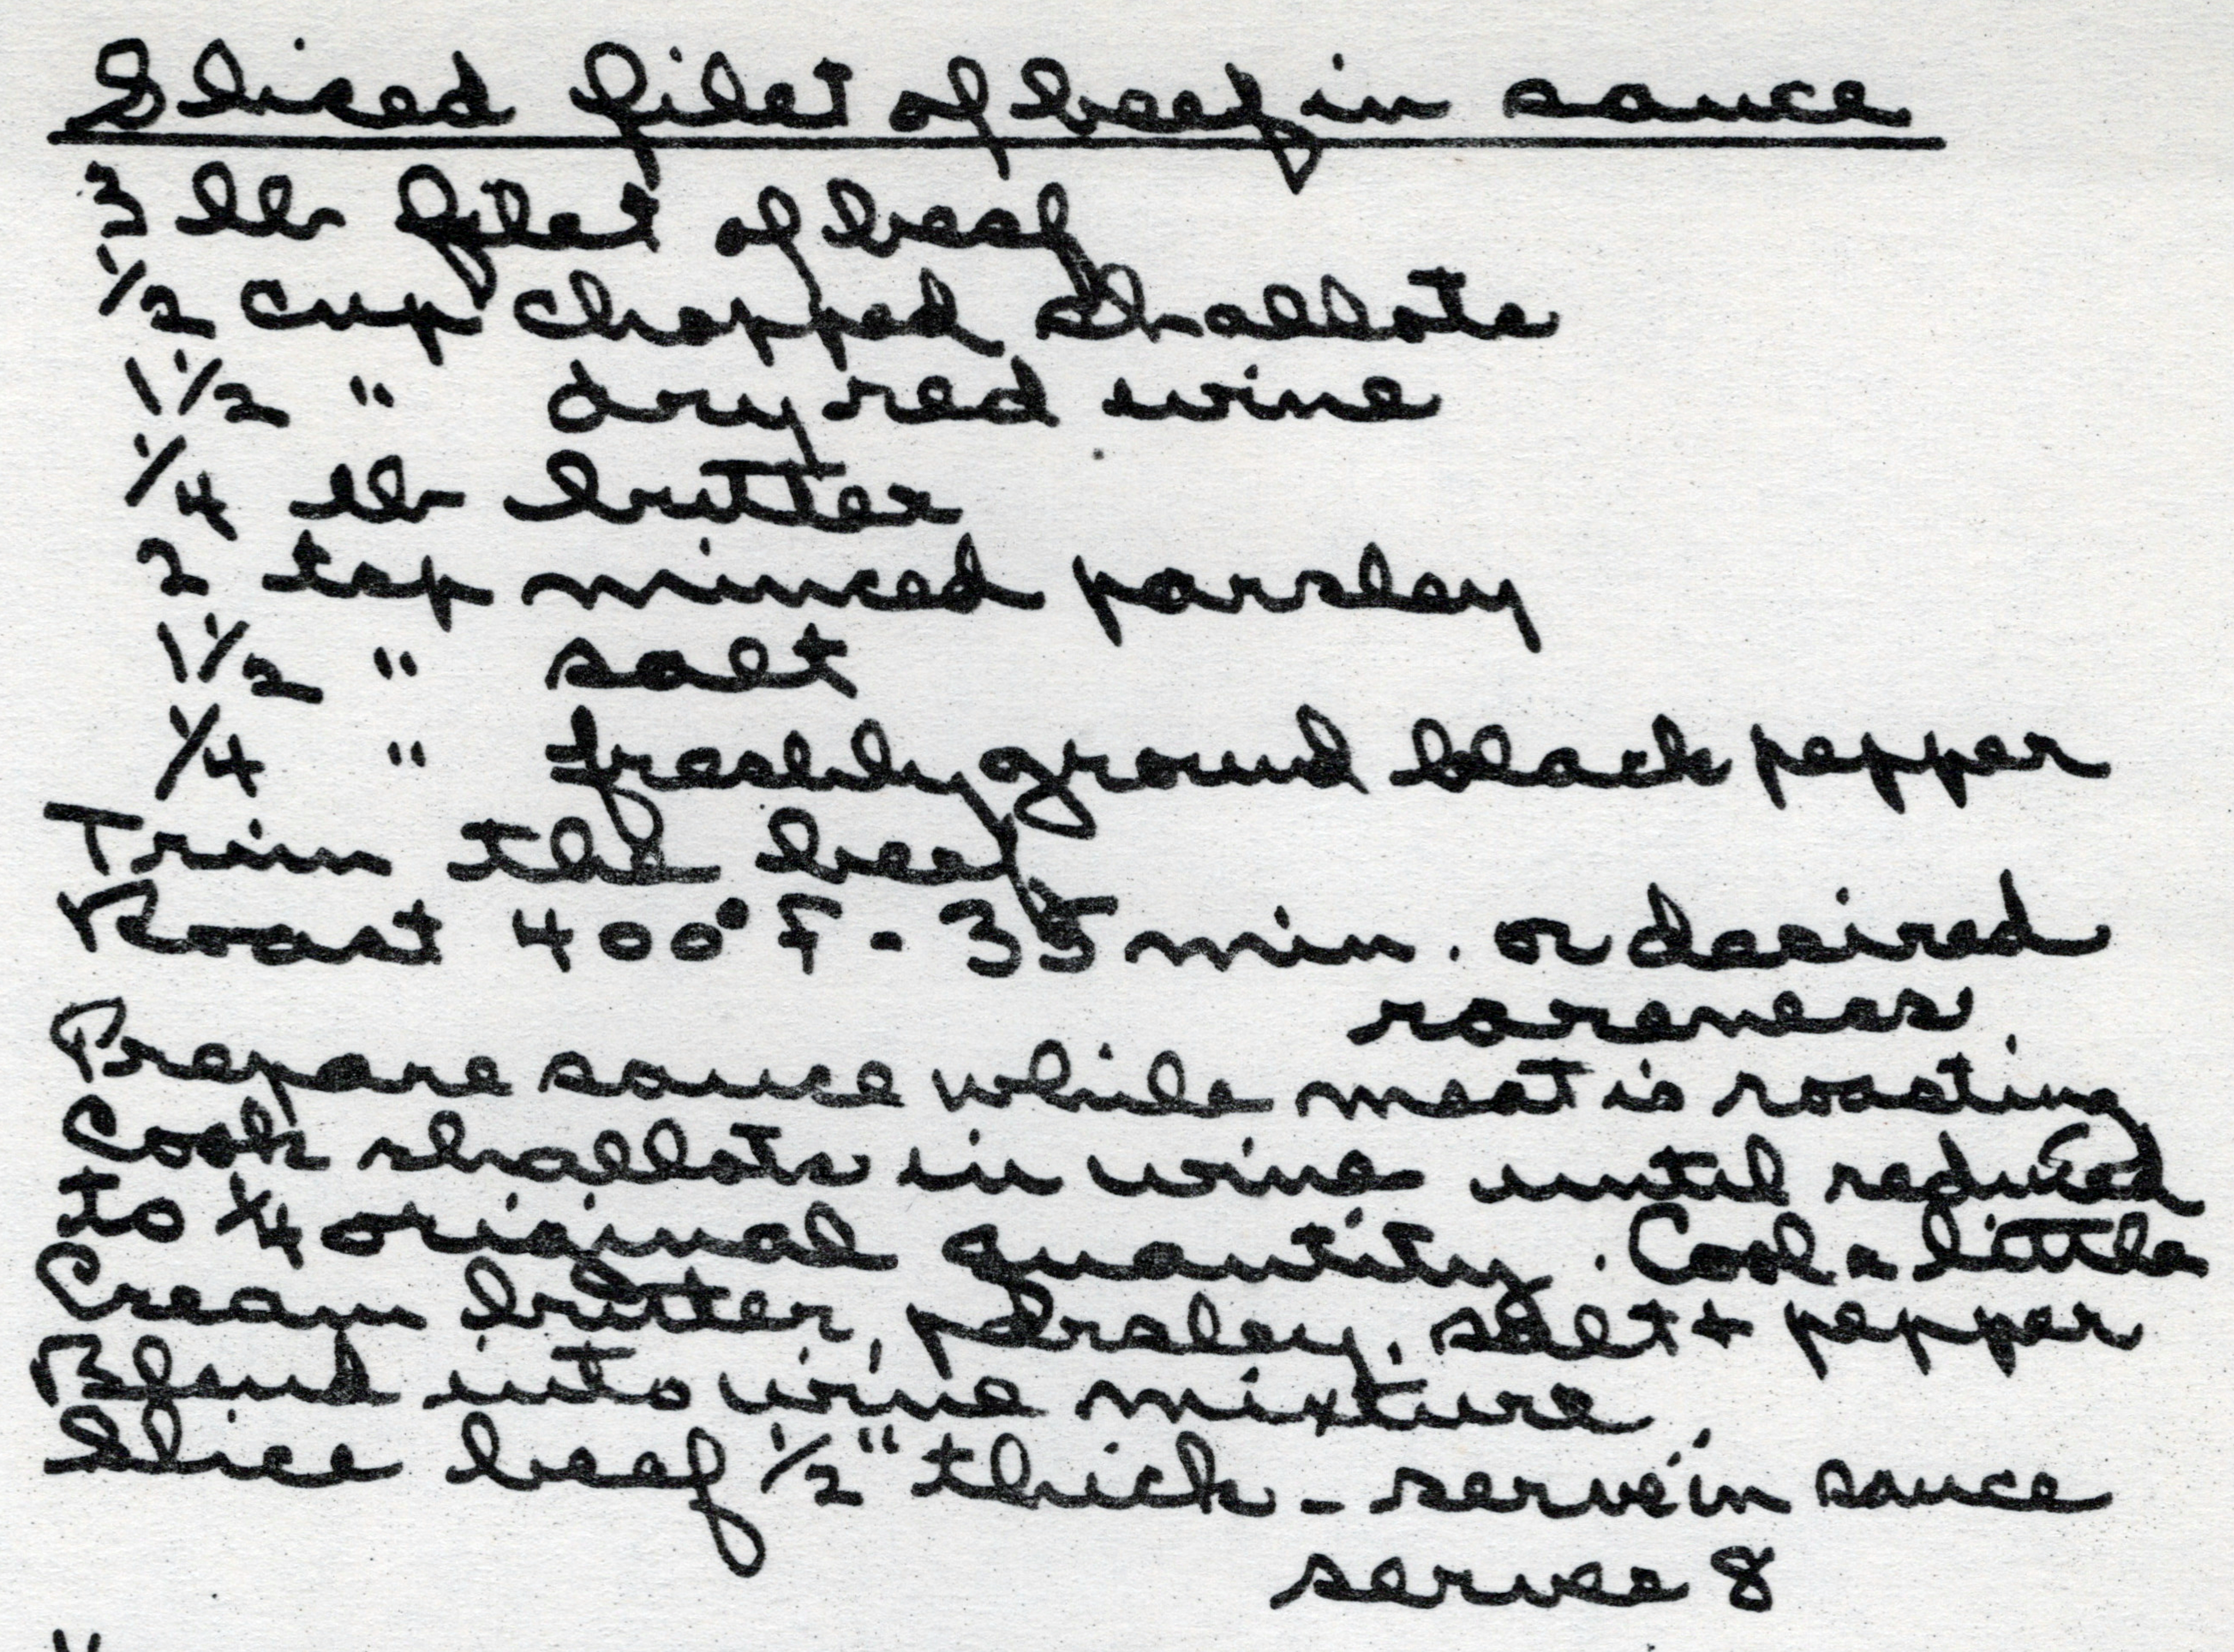 Sliced filet of beef in sauce
3 lb filet of beef
1/2 cup chopped shallots
1 1/2 " dry red wine
1/4 lb butter
2 tsp minced parsley
1 1/2 " salt
1/4 " freshly ground black pepper
Trim the beef
Roast 400° F - 35 min. or desired
rareness.
Prepare sauce while meat is roasting
Cook shallots in wine until reduced
to 1/4 original quantity. Cool a little
Cream butter, parsley, salt + pepper
Blend into wine mixture.
Slice beef 1/2" thick - serve in sauce
serves 8